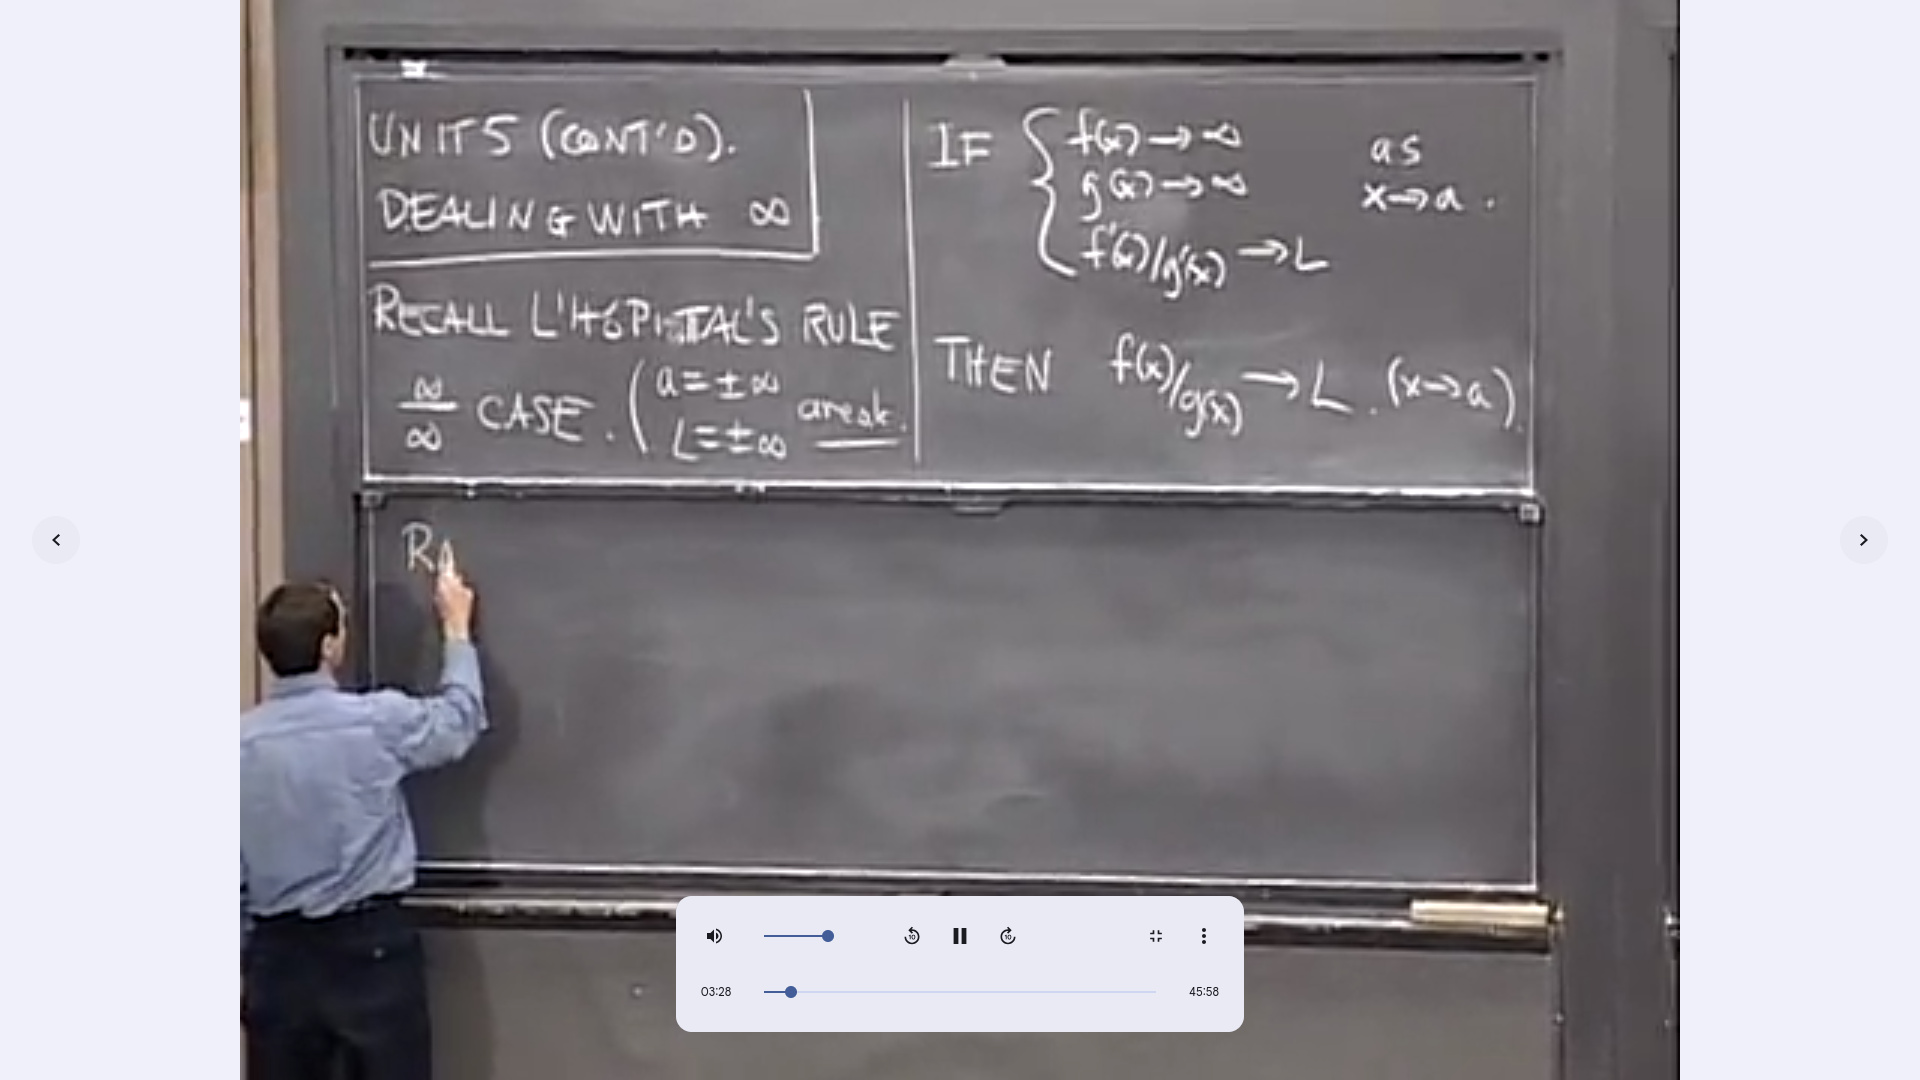 UNIT 5 (CONT'D).
DEALING WITH ∞
RECALL L'HÔPITAL'S RULE
∞/∞ CASE. (a = ± ∞
L = ± ∞ are ok.
IF { f(x) → ∞ as
g(x) → ∞ x → a.
f'(x)/g'(x) → L
THEN f(x)/g(x) → L. (x → a).
RA
03:28
45:58